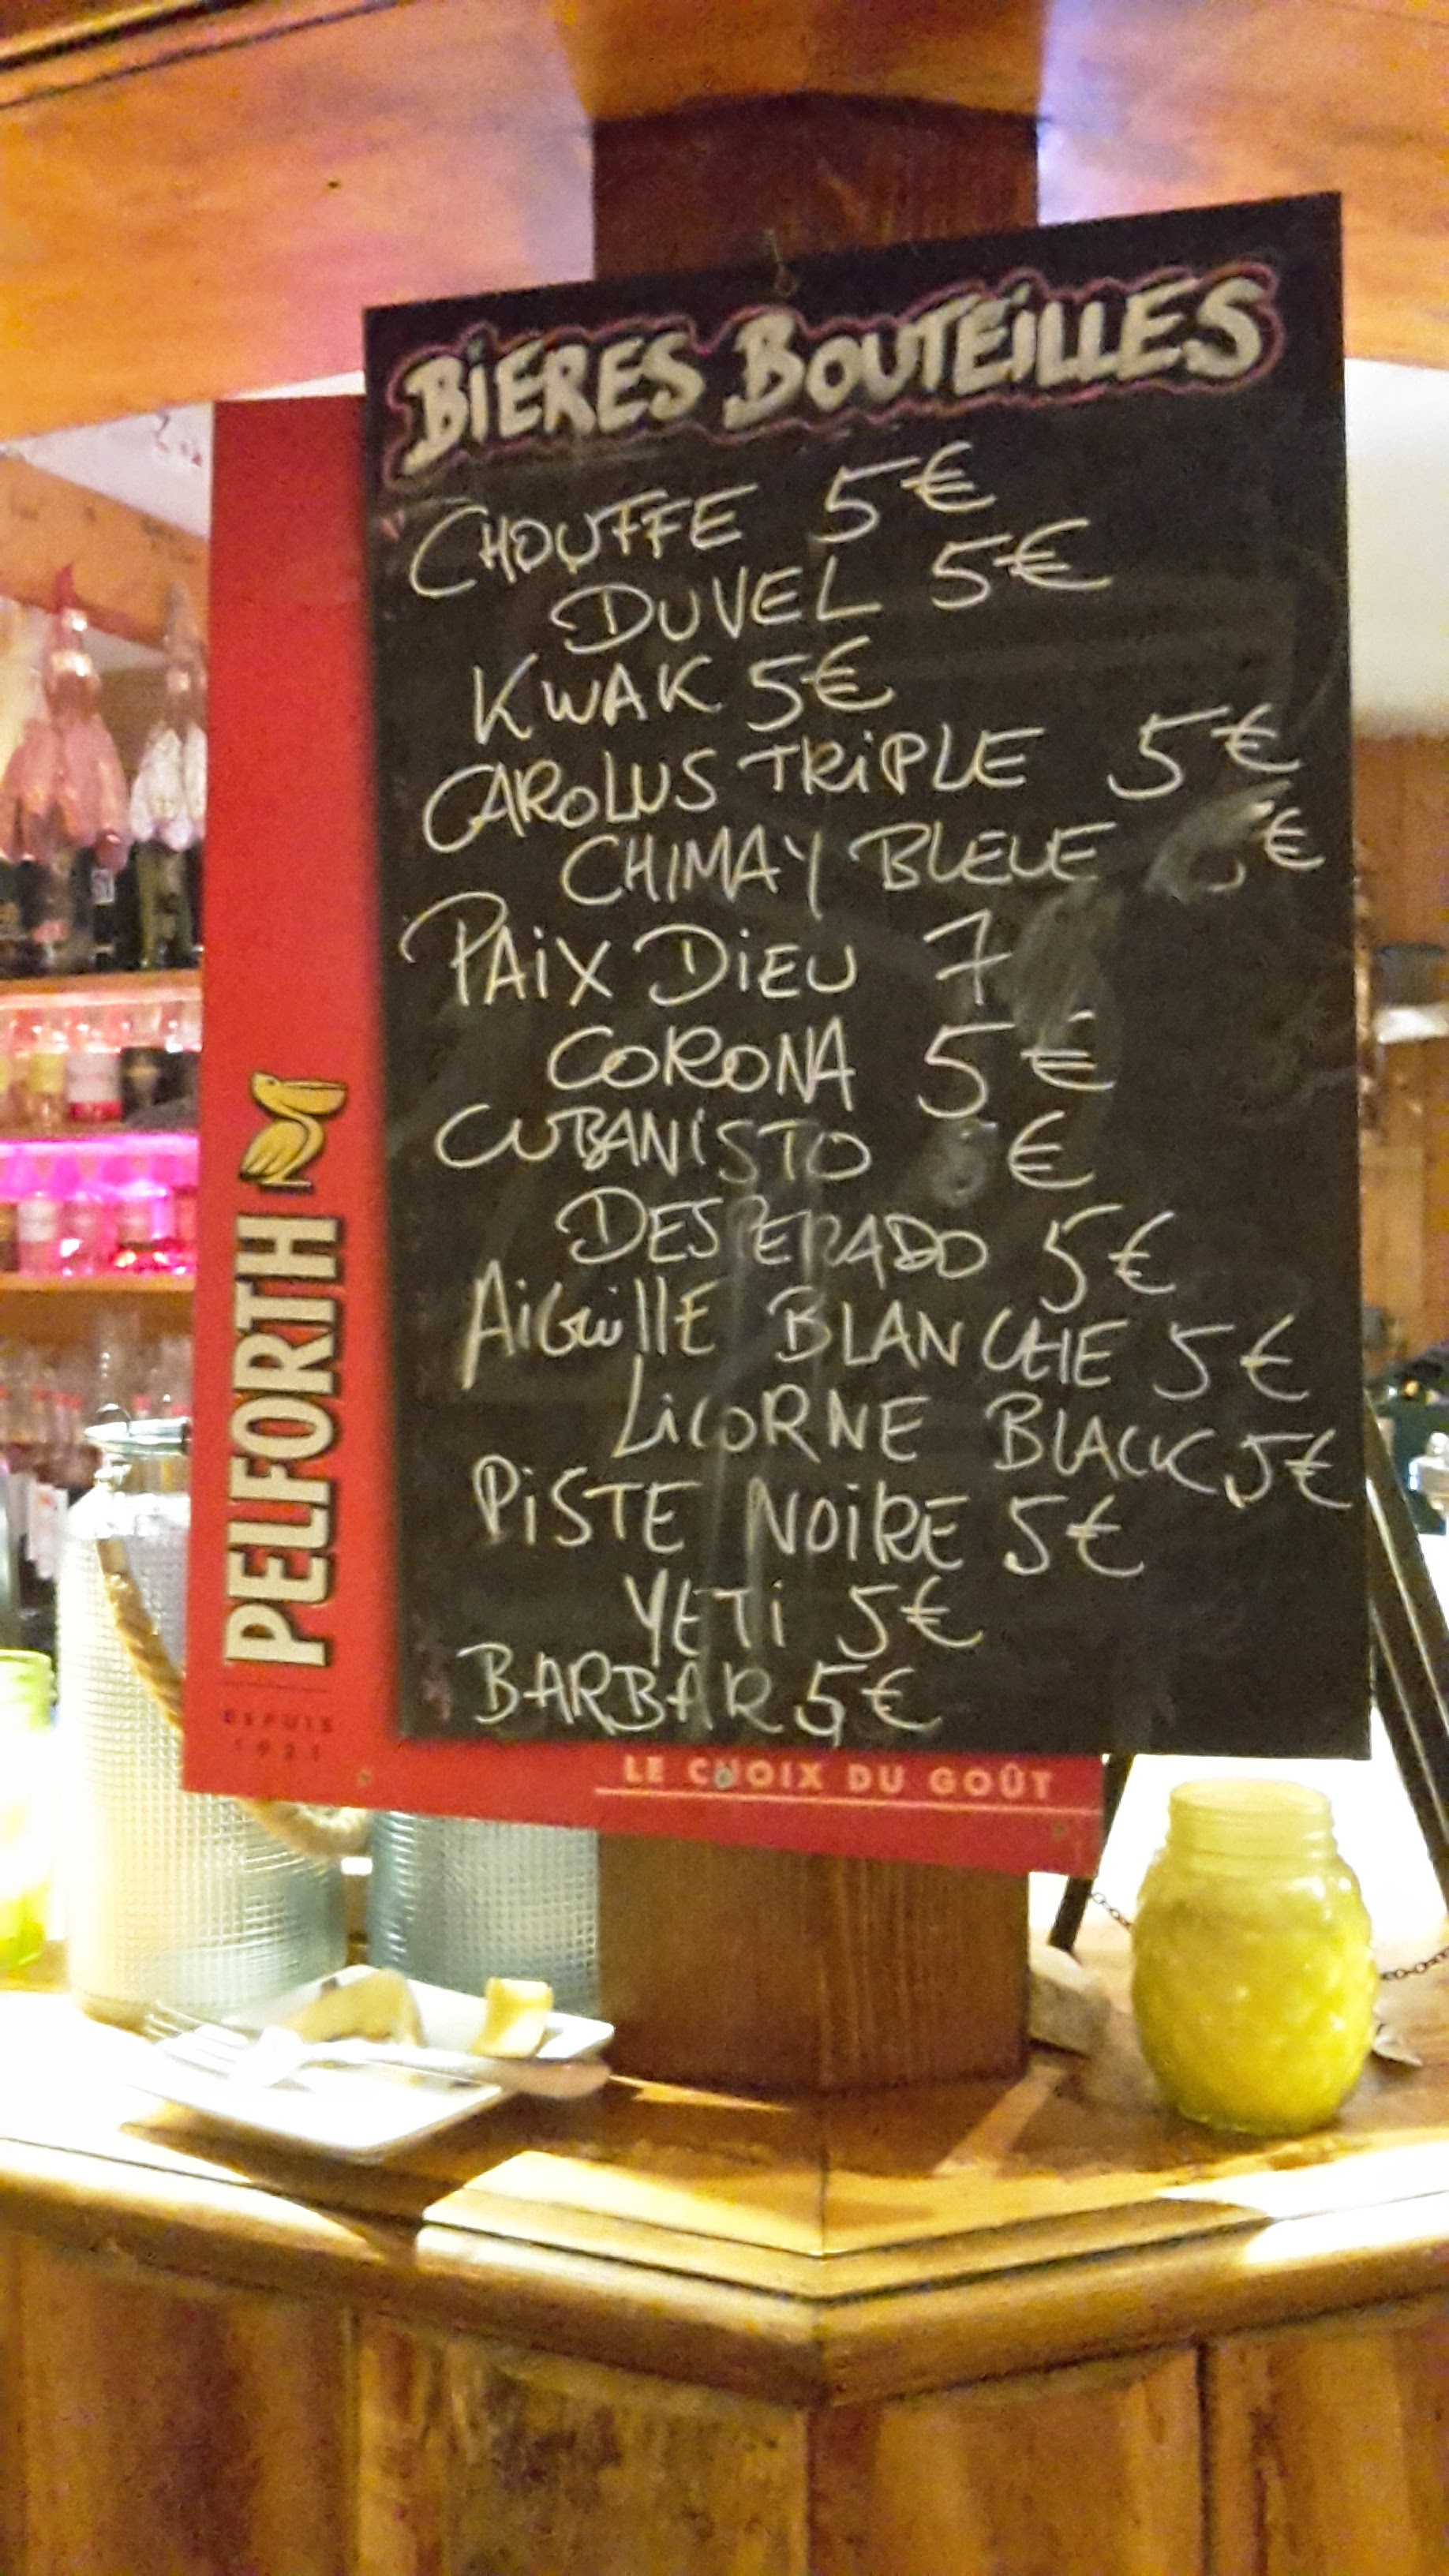 BIERES BOUTEILLES
CHOUFFE 5€
DUVEL 5€
KWAK 5€
CAROLUS TRIPLE 5€
CHIMAY BLEUE €
PAIX DIEU 7
CORONA 5€
CUBANISTO €
DESPERADO 5€
AIGUILLE BLANCHE 5€
LICORNE BLACK 5€
PISTE NOIRE 5€
YETI 5€
BARBAR 5€
PELFORTH
DEPUIS
1921
LE CHOIX DU GOÛT